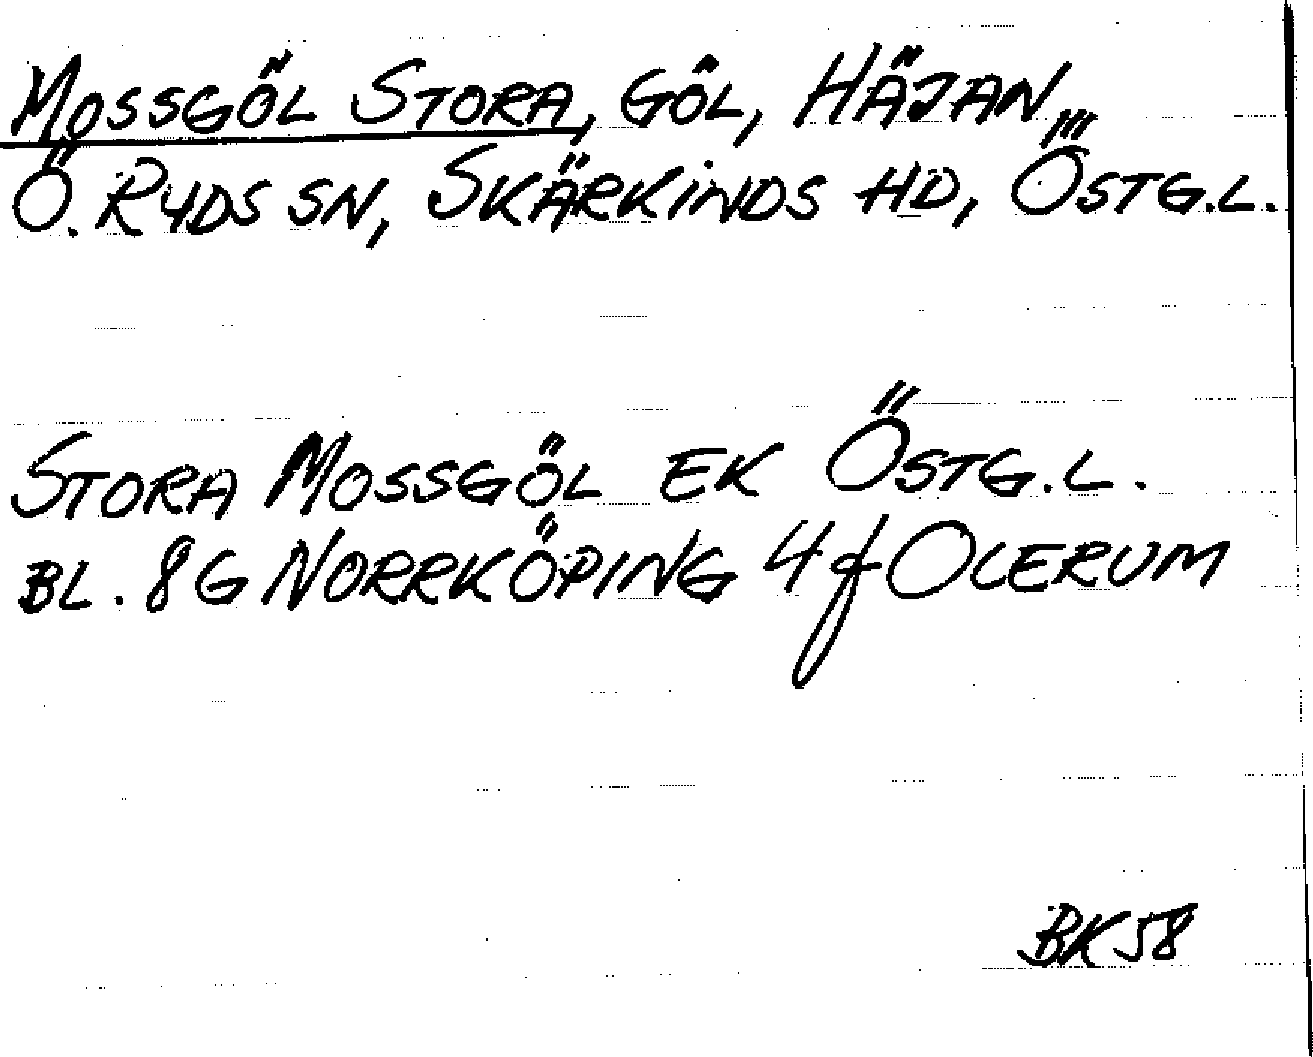 MOSSGÖL STORA, GÖL, HÄJAN,
Ö. RYDS SN, SKÄRKINDS HD, ÖSTG.L.
STORA MOSSGÖL EK ÖSTG.L.
BL. 8G NORRKÖPING 4f GUSUM
BK58